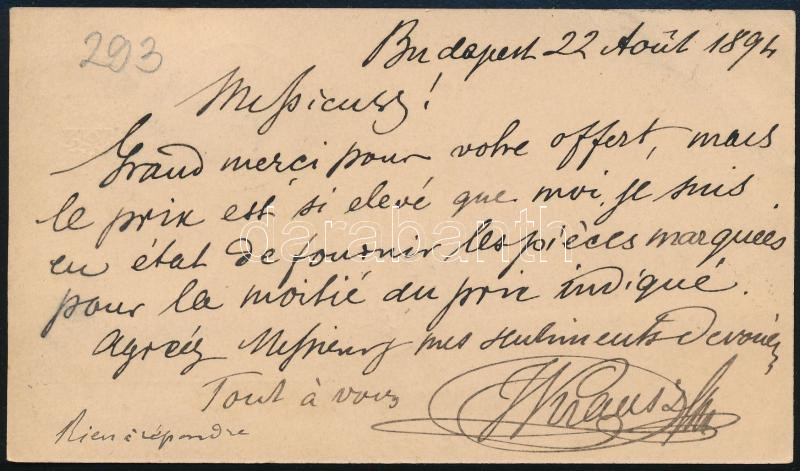 293
Budapest 22 Août 1894
Messieurs!
Grand merci pour votre offert, mais
le prix est si elevé que moi je suis
en état de fournir les pièces marquées
pour la moitié du prix indiqué.
Agréez Messieurs mes sentiments devoués
Tout à vous
Krausz
Rien à répondre
darabanth